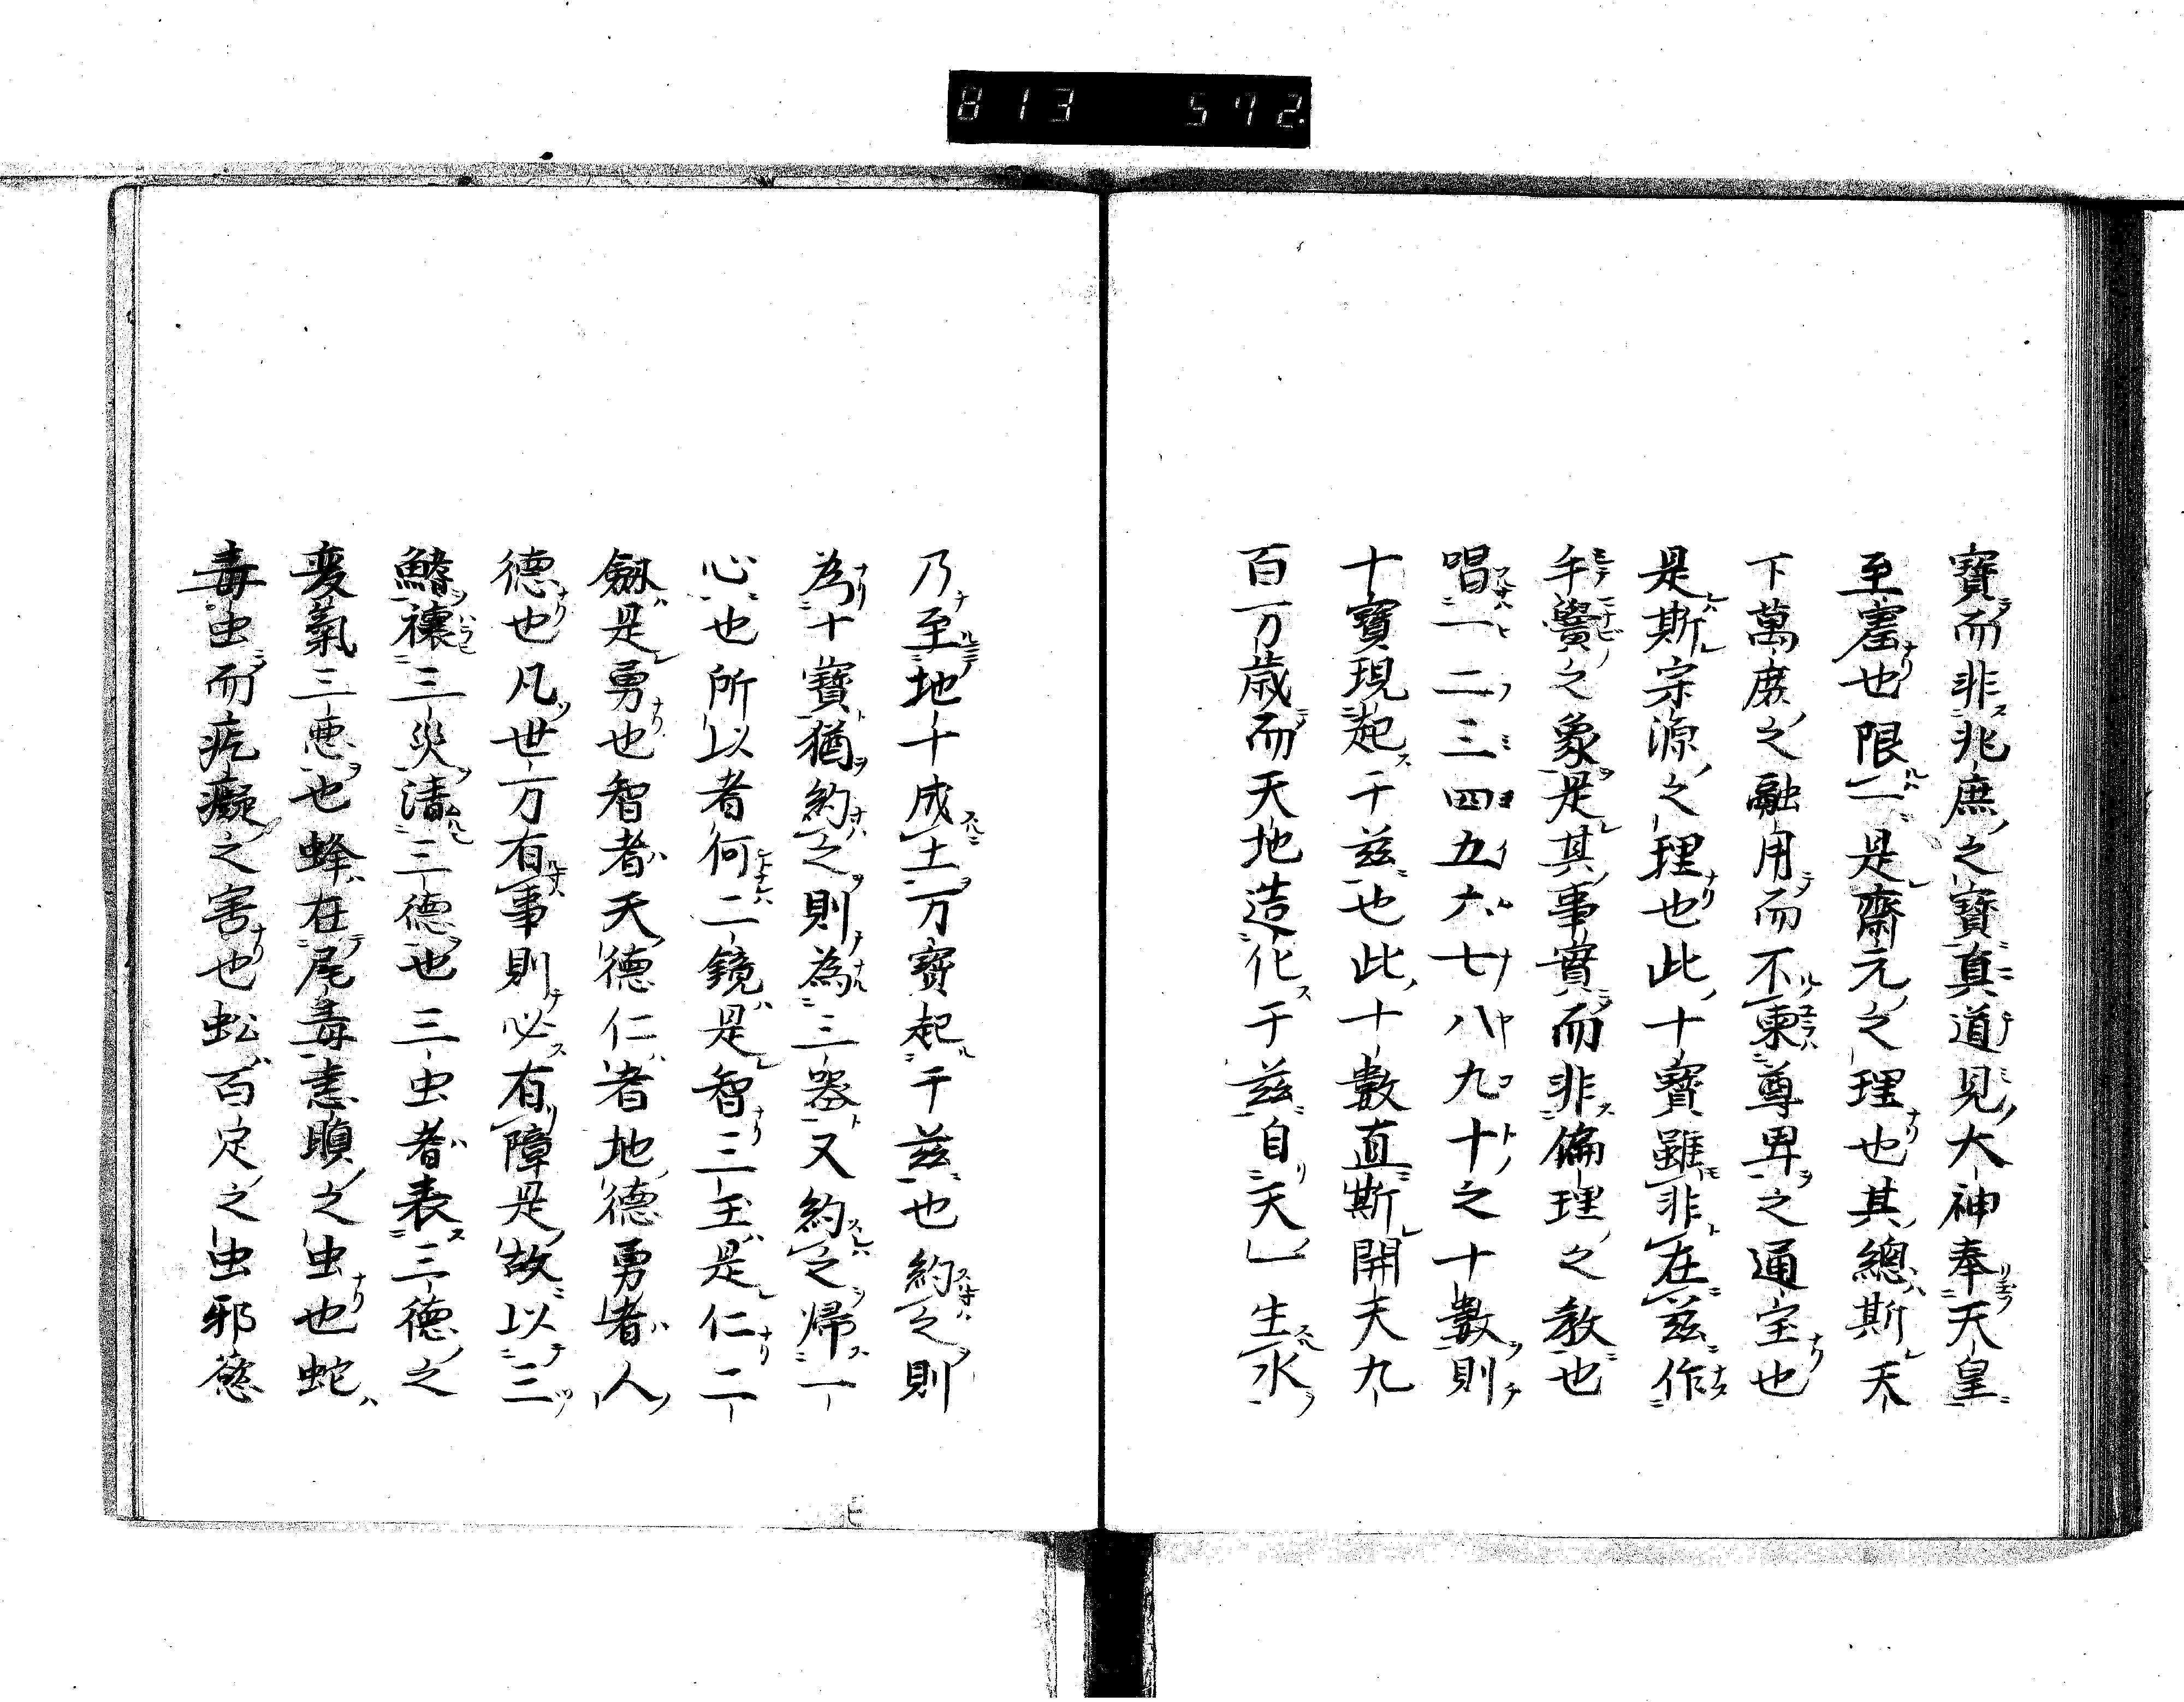 813 572.
寶而非兆庶之寶真道見大神奉天皇
至盡也限一是齋元之理也其總斯天
下萬庶之融用而不東尊卑之通宝也
是斯宗源之理也此十寶雖非在茲作
手黌之象是其事實而非偏理之教也
唱一二三四五六七八九十之十數則
十寶現起于茲也此十數直斯開天九
百万歲而天地造化于茲自天一生水
乃至地十成土万寶起于茲也約之則
為十寶猶約之則為三器又約之帰一
心也所以者何二鏡是智三玉是仁二
劔是勇也智者天德仁者地德勇者人
德也凡世万有事則必有障是故以三
鰭禳三災清三德也三虫者表三德之
変氣三惡也蜂在尾毒恚瞋之虫也蛇
毒虫而疙癡之害也蚣百足之虫邪慾